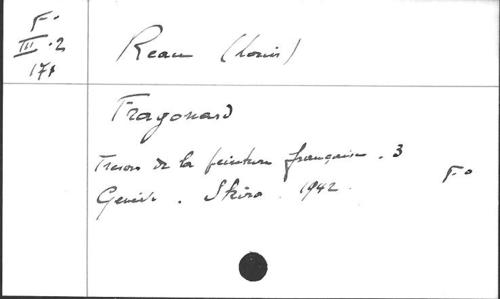 F°
III.2
171
Reau (Louis)
Fragonard
Tresors de la peinture française. 3
Genève. Skira. 1942.
F°